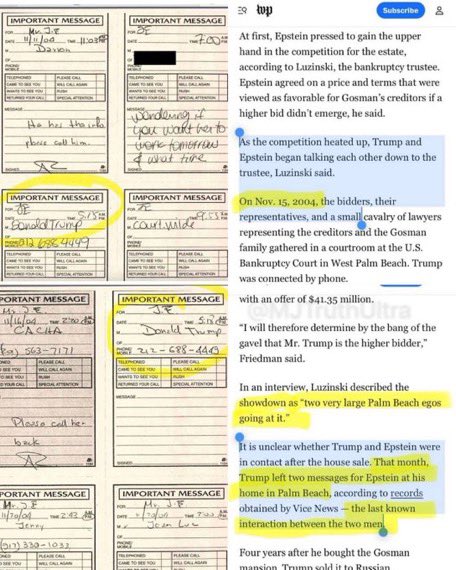 IMPORTANT MESSAGE
FOR
DATE 11/11/04 TIME 11:03 A.M.
M
OF
PHONE/
MOBILE
TELEPHONED PLEASE CALL
CAME TO SEE YOU WILL CALL AGAIN
WANTS TO SEE YOU RUSH
RETURNED YOUR CALL SPECIAL ATTENTION
MESSAGE
He has the info
please call him.
SIGNED
IMPORTANT MESSAGE
FOR JE
DATE TIME 7:00
M
OF
PHONE/
MOBILE
TELEPHONED PLEASE CALL
CAME TO SEE YOU WILL CALL AGAIN
WANTS TO SEE YOU RUSH
RETURNED YOUR CALL SPECIAL ATTENTION
MESSAGE
wondering if
you want her to
work tomorrow
& what time
SIGNED
IMPORTANT MESSAGE
FOR JE
DATE TIME 5:15
M Donald Trump
OF
PHONE/
MOBILE 212 688 4449
TELEPHONED PLEASE CALL
CAME TO SEE YOU WILL CALL AGAIN
WANTS TO SEE YOU RUSH
RETURNED YOUR CALL SPECIAL ATTENTION
IMPORTANT MESSAGE
FOR JE
DATE TIME
M Courtride
OF
PHONE/
MOBILE
TELEPHONED PLEASE CALL
CAME TO SEE YOU WILL CALL AGAIN
WANTS TO SEE YOU RUSH
RETURNED YOUR CALL SPECIAL ATTENTION
PORTANT MESSAGE
Mr. J.E
11/16/04 TIME 2:50
CACHA
563-7171
PLEASE CALL
WILL CALL AGAIN
RUSH
SPECIAL ATTENTION
Please call her
back
IMPORTANT MESSAGE
FOR J.E
DATE TIME 5:15
M Donald Trump
OF
PHONE/
MOBILE 212-688-4449
TELEPHONED PLEASE CALL
CAME TO SEE YOU WILL CALL AGAIN
WANTS TO SEE YOU RUSH
RETURNED YOUR CALL SPECIAL ATTENTION
MESSAGE
SIGNED
PORTANT MESSAGE
Mr. J.E
11/20/04 TIME
Jenny
(917) 330-1033
PLEASE CALL
WILL CALL AGAIN
IMPORTANT MESSAGE
FOR Mr. J.E
DATE TIME
M Jean Luc
OF
PHONE/
MOBILE
TELEPHONED PLEASE CALL
CAME TO SEE YOU WILL CALL AGAIN
wp
Subscribe
At first, Epstein pressed to gain the upper
hand in the competition for the estate,
according to Luzinski, the bankruptcy trustee.
Epstein agreed on a price and terms that were
viewed as favorable for Gosman's creditors if
a higher bid didn't emerge, he said.
As the competition heated up, Trump and
Epstein began talking each other down to the
trustee, Luzinski said.
On Nov. 15, 2004, the bidders, their
representatives, and a small cavalry of lawyers
representing the creditors and the Gosman
family gathered in a courtroom at the U.S.
Bankruptcy Court in West Palm Beach. Trump
was connected by phone.
with an offer of $41.35 million.
@MJTruthUltra
“I will therefore determine by the bang of the
gavel that Mr. Trump is the higher bidder,”
Friedman said.
In an interview, Luzinski described the
showdown as “two very large Palm Beach egos
going at it.”
It is unclear whether Trump and Epstein were
in contact after the house sale. That month,
Trump left two messages for Epstein at his
home in Palm Beach, according to records
obtained by Vice News — the last known
interaction between the two men.
Four years after he bought the Gosman
mansion, Trump sold it to Russian